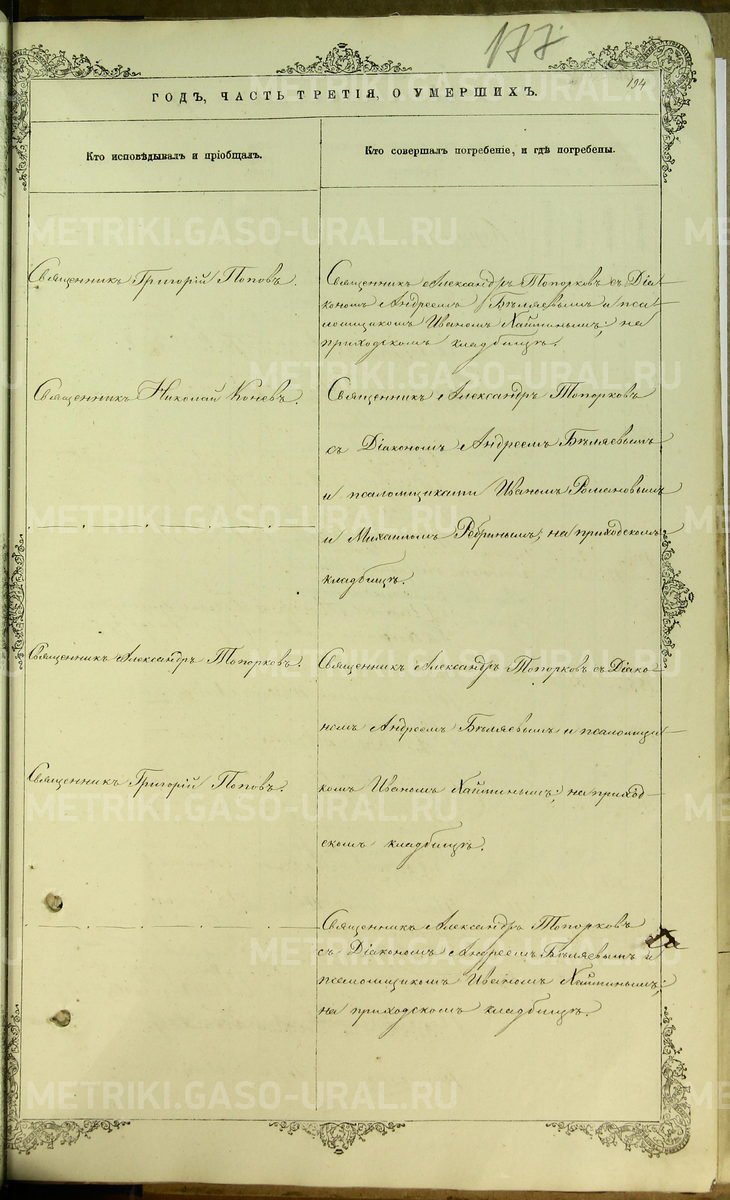 177
194
ГОДЪ, ЧАСТЬ ТРЕТІЯ, О УМЕРШИХЪ.
Кто исповѣдывалъ и пріобщалъ.
Кто совершалъ погребеніе, и гдѣ погребены.
Священникъ Григорій Поповъ.
Священникъ Александръ Топорковъ съ Діа-
кономъ Андреемъ Бѣляевымъ и пса-
ломщикомъ Иваномъ Хайминымъ; на
приходскомъ кладбищѣ.
Священникъ Николай Коневъ.
Священникъ Александръ Топорковъ
съ Діакономъ Андреемъ Бѣляевымъ
и псаломщиками Иваномъ Романовымъ
и Михаиломъ Ребринымъ, на приходскомъ
кладбищѣ.
Священникъ Александръ Топорковъ.
Священникъ Александръ Топорковъ съ Діако-
номъ Андреемъ Бѣляевымъ и псаломщи-
Священникъ Григорій Поповъ.
комъ Иваномъ Хайминымъ; на приход-
скомъ кладбищѣ.
Священникъ Александръ Топорковъ
съ Діакономъ Андреемъ Бѣляевымъ и
псаломщикомъ Иваномъ Хайминымъ;
на приходскомъ кладбищѣ.
METRIKI.GASO-URAL.RU